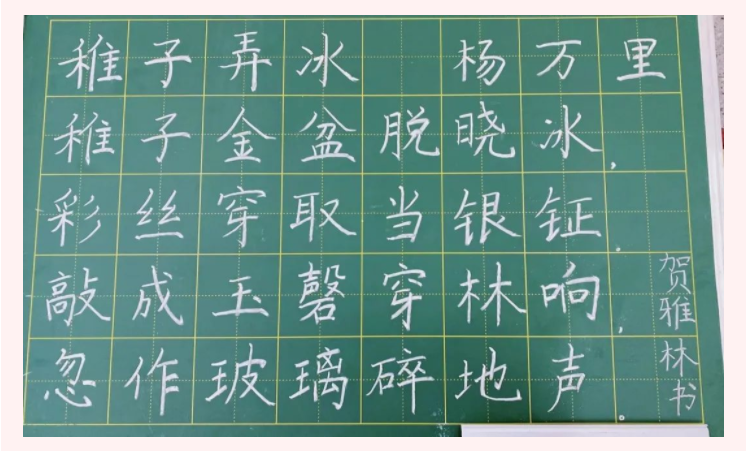 稚子弄冰 杨万里
稚子金盆脱晓冰，
彩丝穿取当银钲。
敲成玉磬穿林响，
忽作玻璃碎地声。
贺雅林书